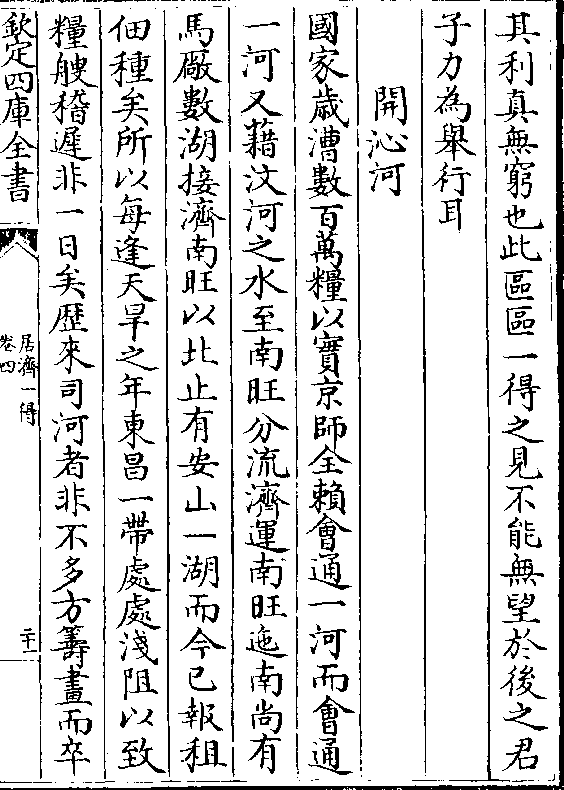 其利真無窮也此區區一得之見不能無望於後之君
子力為舉行耳
開沁河
國家歲漕數百萬糧以實京師全賴會通一河而會通
一河又藉汶河之水至南旺分流濟運南旺迤南尚有
馬廠數湖接濟南旺以北止有安山一湖而今已報租
佃種矣所以每逢天旱之年東昌一帶處處淺阻以致
糧艘稽遲非一日矣歴來司河者非不多方籌畫而卒
欽定四庫全書
居濟一得
卷四
二十一